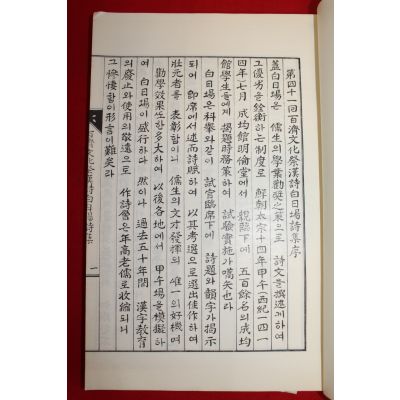 第四十一回百濟文化祭漢詩白日場詩集序
蓋白日場은 儒生의 學業勸奬之策으로 詩文을 撰述케하여
그優劣을 銓衡하는制度로 鮮朝太宗十四年甲午西紀一四一
四年七月 成均館明倫堂에서 親臨下에 五百餘名의成均
館學生들에게 揭題時務策하여 試驗實施가嚆矢也라
白日場은科擧와같이 試官臨席下에 詩題와韻字가揭示
되어 即席에서述而詩賦하여 以其考選으로選出佳作하여
壯元者를 表彰함이니 儒生의文才發揮의 唯一의好機며
勸學效果또한多大하여 以後各地에서 甲午場을模擬하
여 白日場이盛行하다 然이나 過去五十年間 漢字敎育
의廢止와使用의敬遠으로 作詩層은年高老儒로收縮되니
그悽悽함이形言이難矣라
一